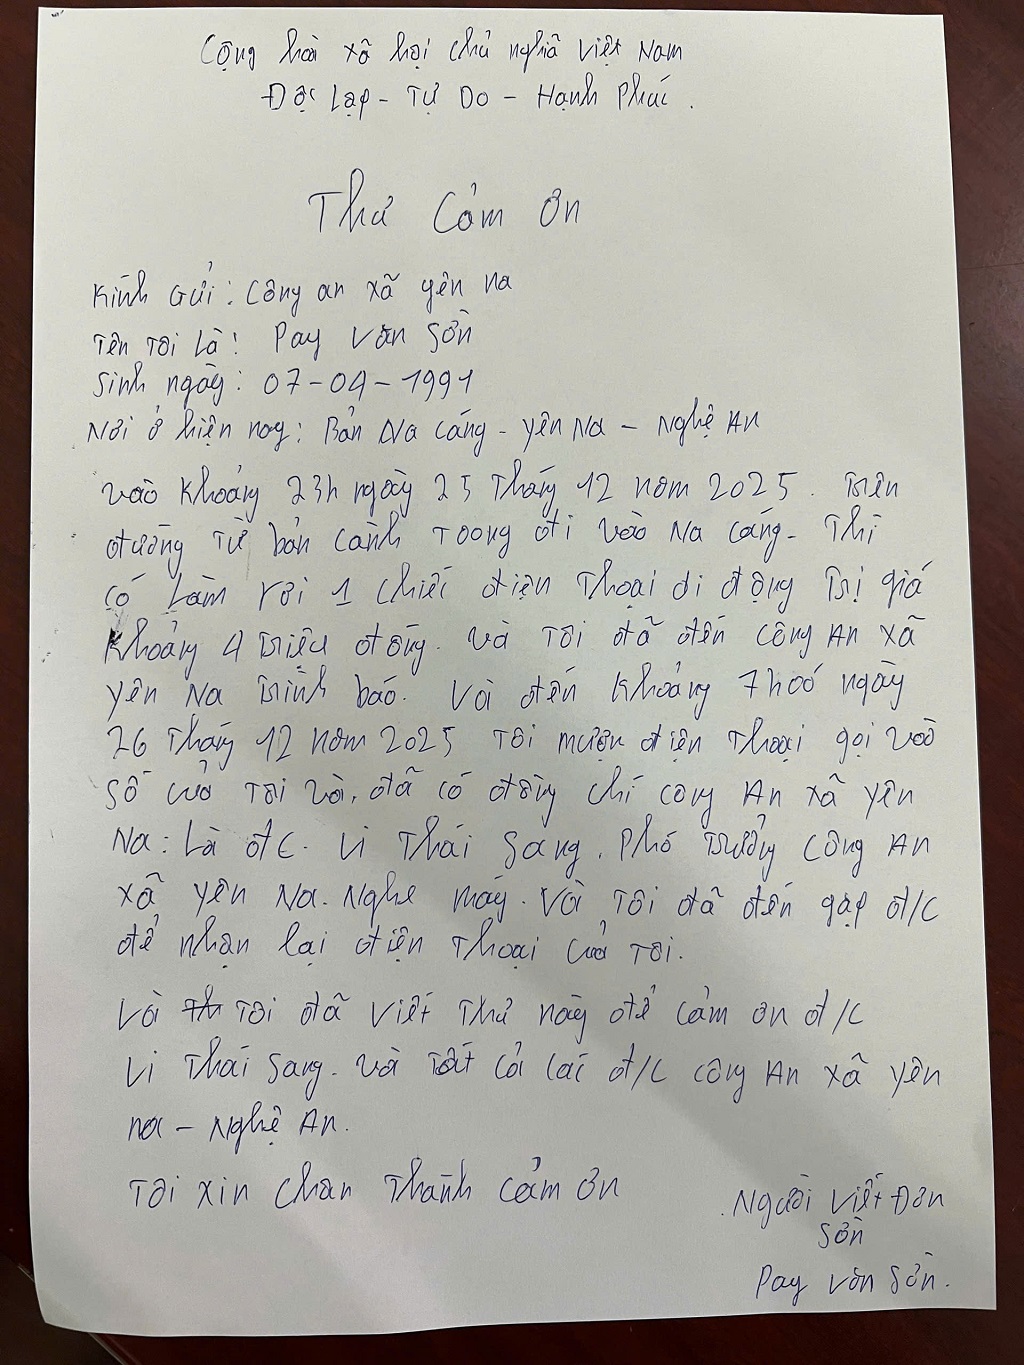 Cộng hòa xã hội chủ nghĩa Việt Nam
Độc Lập - Tự Do - Hạnh Phúc.
Thư Cảm ơn
Kính Gửi: Công an xã yên na
Tên Tôi Là: Pay Văn Sơn
Sinh ngày: 07-04-1991
Nơi ở hiện nay: Bản Na Cáng - yên Na - Nghệ An
vào khoảng 23h ngày 25 Tháng 12 năm 2025. Trên
đường Từ bản Cành Toong đi vào Na Cáng - Thì
có Làm rơi 1 chiếc điện Thoại di động Trị giá
khoảng 4 triệu đồng. và Tôi đã đến công An xã
yên Na Trình báo. Và đến khoảng 7h00 ngày
26 Tháng 12 năm 2025 Tôi mượn điện Thoại gọi vào
số của Tôi và, đã có đồng chí công An xã yên
Na: Là đ/c. Vi Thái Sang. Phó Trưởng Công An
xã yên Na. Nghe máy. Và Tôi đã đến gặp đ/c
để nhận lại điện Thoại của Tôi.
Và Tôi đã viết Thư này để cảm ơn đ/c
Vi Thái Sang. và Tất cả các đ/c công An xã yên
na - Nghệ An.
Tôi xin chân Thành cảm ơn
Người viết Đơn
Sơn
Pay Văn Sơn.